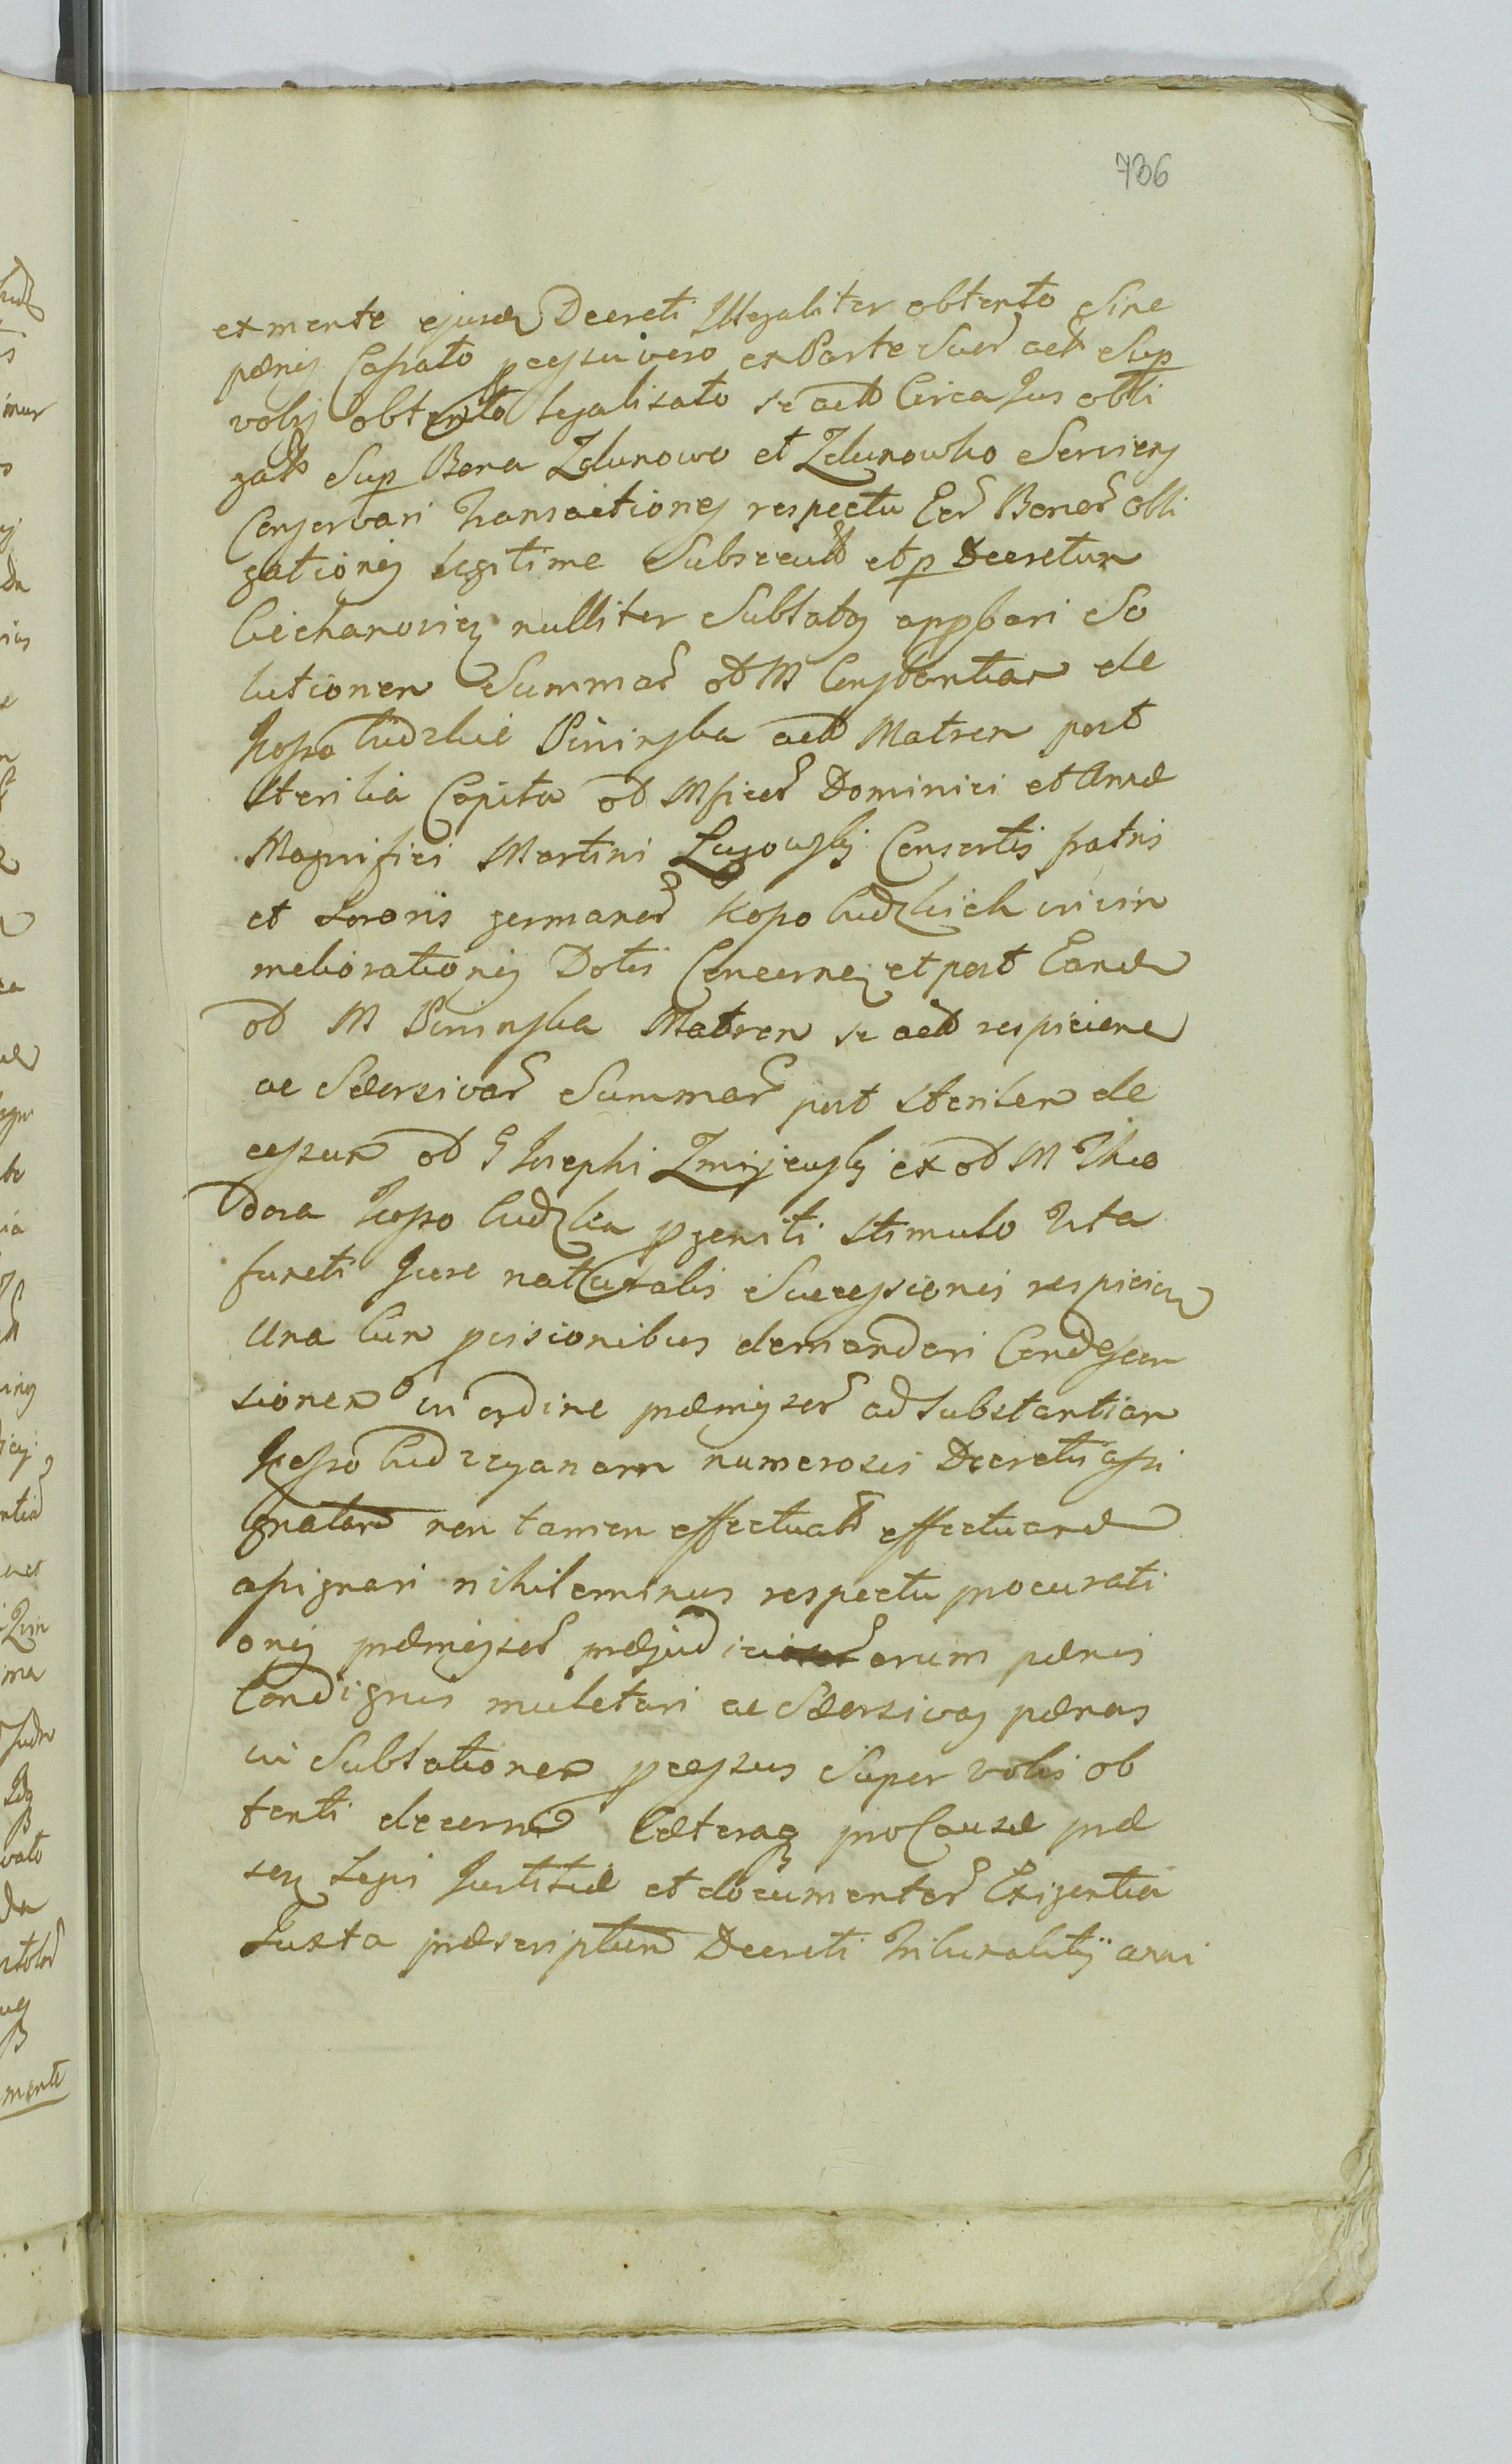 736
ex mente ejusd Decreti Illegaliter obtento Sine
pænis Cassato pcessu vero ex Parte Suor act Sup
volis obtento legalisato se act Circa Jus obli
gat Sup Bona Zdunowo et Zdunowko Serviens
Conservari Transactiones respectu Eor Bonor obli
gationis legitime Subsecut et p Decretum
Ciechanovien nulliter Sublatas appbari So
lutionem Summar ob M Constantiae de
Kosso budzkie Pininska act Matrem post
sterilia Capita ob Mficor Dominici et Annæ
Magnifici Martini Consortis fratris
et Sororis germanor Kossobudzkich in vim
meliorationis Dotis Concernen et post Eand
ob M Pininska Matrem se act respicient
ac Seorsivar Summar post sterilem de
cessum ob G Josephi Zmijewski ex ob M Theo
dora Kosso budzka pgeniti stimulo Ista
functi Jure naturalis Successionis respicien
Una Cum pvisionibus demandari Condescen
sionem in ordine præmissor ad substantiam
Kosso budzcyanam numerosis Decretis assi
gnatam non tamen effectuat effectuand
assignari nihilominus respectu procurati
onis præmissor præjudiciosarum pænis
Condignis mulctari ac Seorsivas pænas
in Sublationem pcessus Super volis ob
tenti decerni Cæteraq pro Causæ præ
sen Legis Justitiæ et documentor Exigentia
Juxta præscriptum Decreti Tribunalitij anni